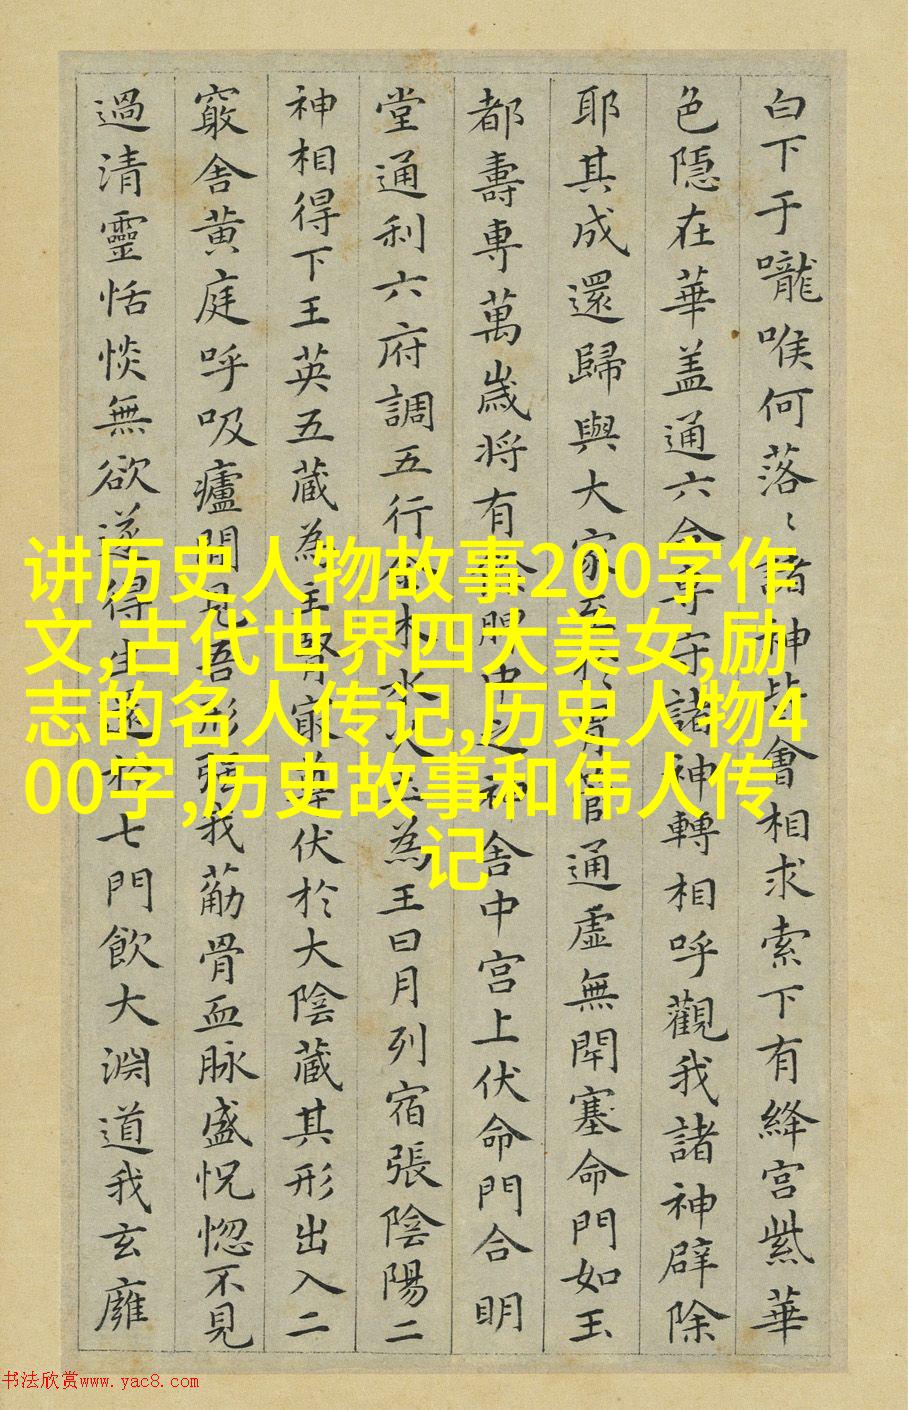 白下于嚨喉何落〻諸神皆會相求索下有絳宮紫華
色隱在華盖通六合專守諸神轉相呼觀我諸神辟除
耶其成還歸與大家至於胃管通虛無閇塞命門如玉
都壽専萬歲将有餘脾中之神舍中宫上伏命門合明
堂通利六府調五行金木水火土為王日月列宿張陰陽二
神相得下王英五蔵為主腎寂尊伏於大陰蔵其形出入二
竅舍黄庭呼吸廬間見吾形強我荕骨血脉盛怳惚不見
過清靈恬惔無欲遂得生還於七門飲大淵道我玄廱
讲历史人物故事200字作
文,古代世界四大美女,励
志的名人传记,历史人物4
00字,历史故事和伟人传
记
书法欣赏www.yac8.com